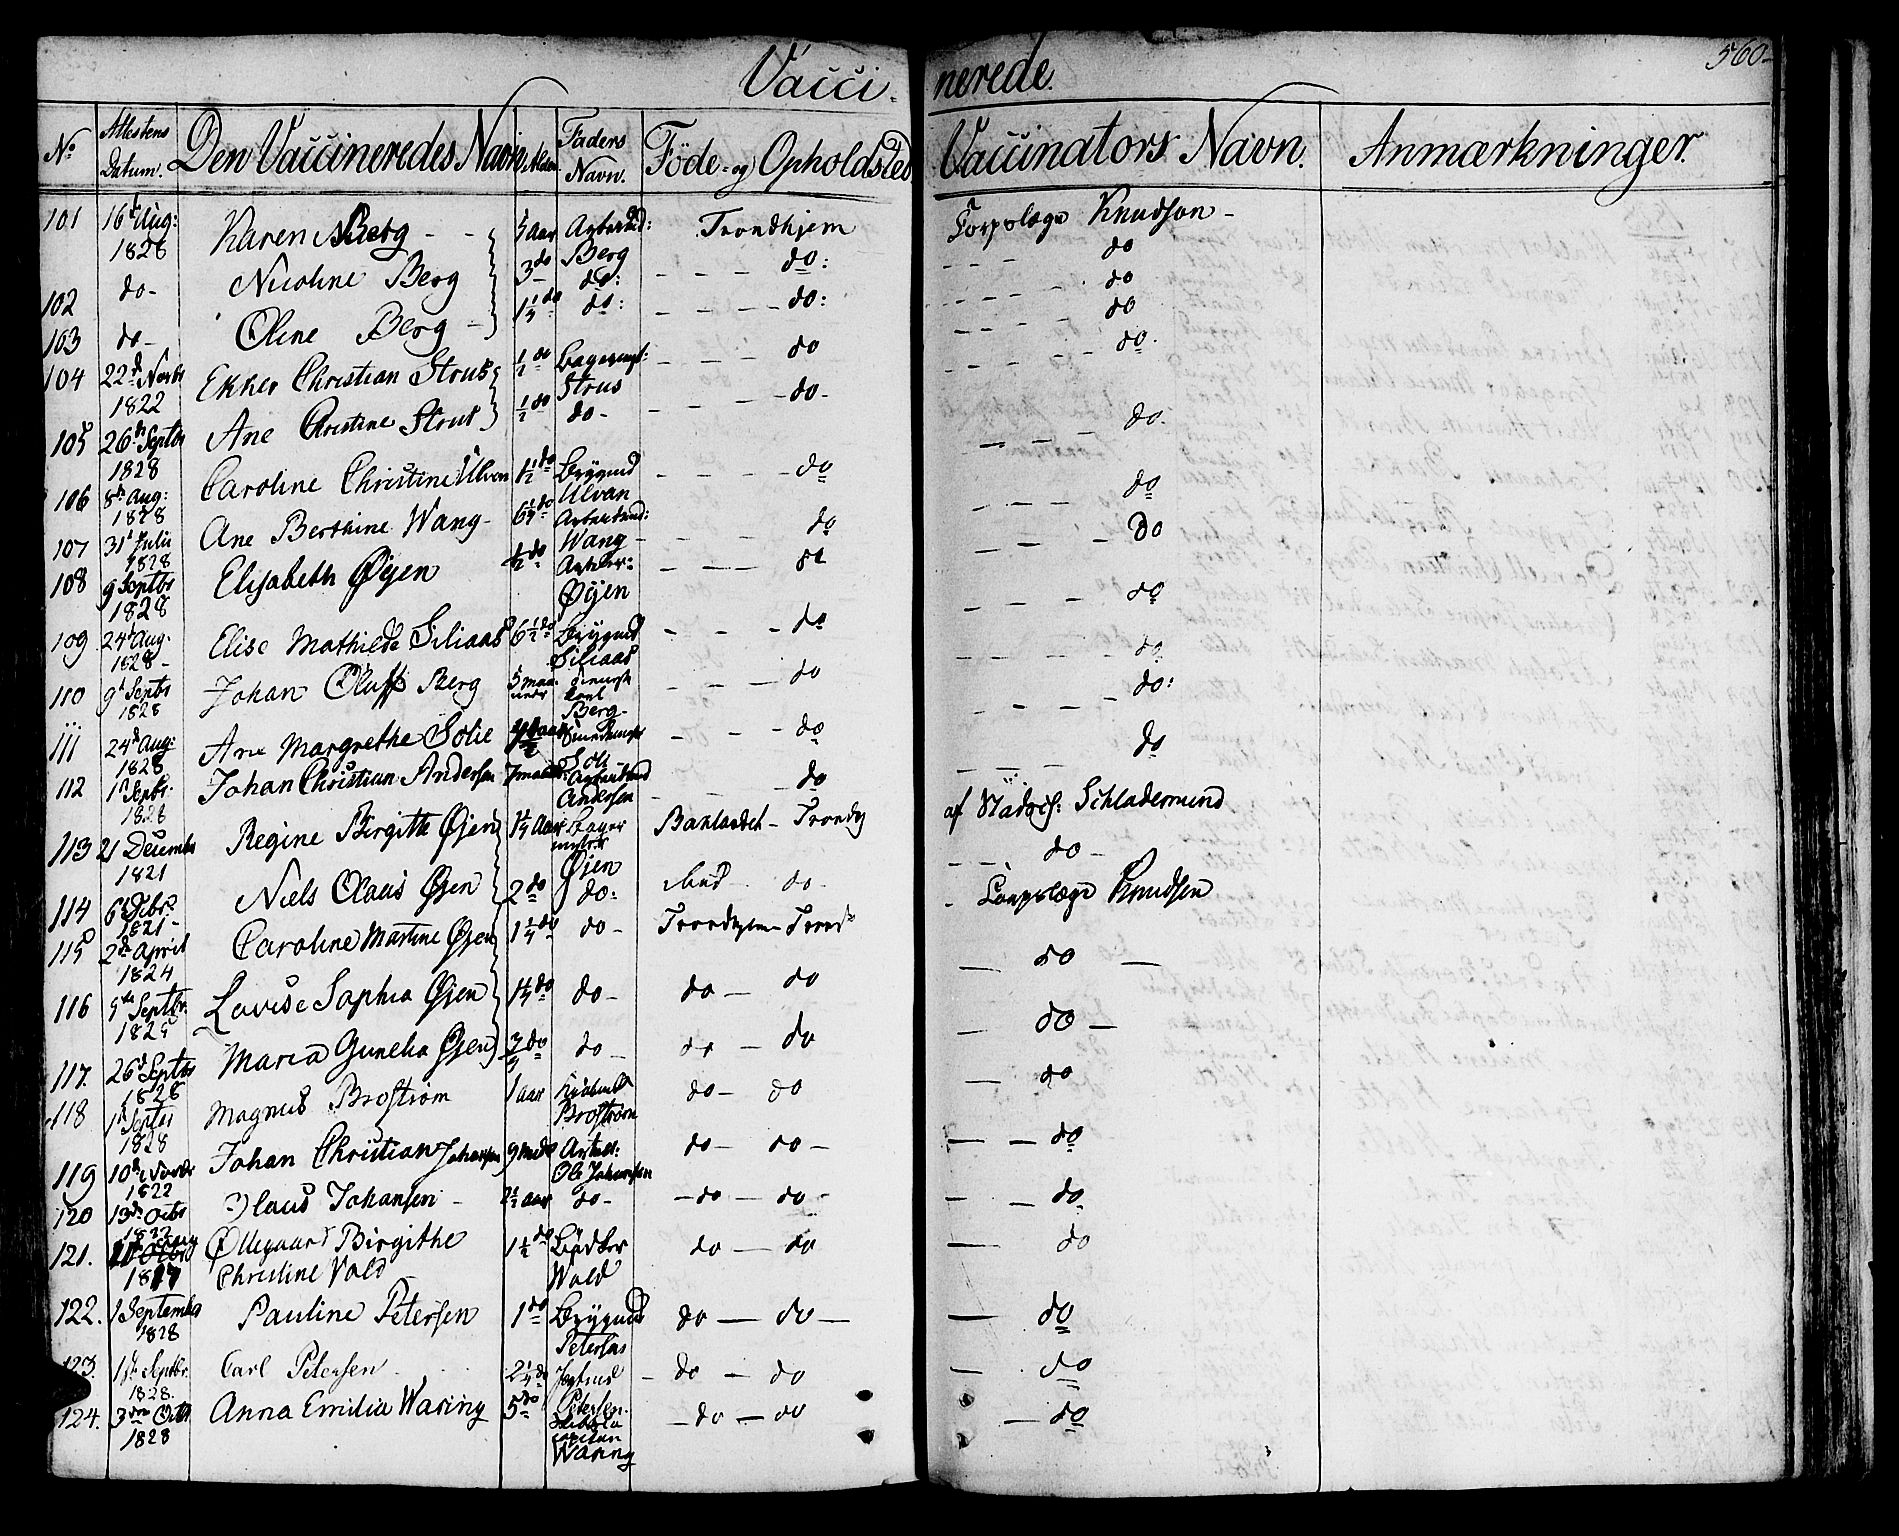 Vacci- nerede.
560
No Attestens Datum. Den Vaccineredes Navn Alder Faders Navn. Føde- og Opholdsted Vaccinators Navn. Anmærkninger.
101 16d Aug: 1828 Karen Berg - - 5 aar Arbeidsd: Berg Trondhjem Corpslæge Knudson -
102 do - Nicoline Berg 3 do do: - - - do: - - - do
103 do - Oline Berg - 1 1/4 do do: - - - do: - - - - do
104 22d Novbr 1822 Ekker Christian Strus 1/2 do Strus - - - do - - - do
105 26de Septbr 1828 Ane Christine Strus 1/2 do do - - - - do - - - - - do.
106 8de Aug: 1828 Caroline Christine Ulvan 1 1/2 do Brygmd Ulvan - - - - do - - - do.
107 31d Julii 1828 Ane Berthine Wang - 6 1/4 do Arbeidsmd: Wang - - - do - - do
108 9 Septbr 1828 Elisabeth Øyen 1/2 do Øyen - - - do - - - do
109 24d Aug. 1828 - Elise Mathilde Siliaas 6 1/2 do Brygmd Siliaas - - - do - - - do
110 9d Septbr 1828 Johan Oluf Berg 5 maa neder Berg - - - - do - - - do
111 24d Aug: 1828 Ane Margrethe Solie aar - - - do - - - - do:
112 1d Septbr. 1828 Johan Christian Andersen 7 maan: Arbeidsmd Andersen - - do - - - do
113 21 Decembr 1821 Regine Birgitte Øyen 1 1/4 Aar Bager mester Øyen Baklandet - Trondh af Stadsch: Schladermund
114 6d Febr. 1821 - Niels Olaus Øyen 2 do do: do - - - do -
115 2d April 1824 Caroline Martine Øyen 1 1/4 do do - Trondhjem - Trond - Corpslæge Knudsen
116 5te Septbr. 1825 Lovise Sophia Øyen 1 1/4 do do - do - do - do -
117. 26d Septbr 1828 Maria Gunelia Øyen 3/4 do do - do - do - do -
118 1d Septbr 1828 Magnus Brostrøm 1 aar Brostrøm do - do - do
119 10de Novbr 1822 Johan Christian Johansen 9 mdr Arbeid: Ole Johansen do - do - - - do
120 13de Octbr 1822 Olaus Johansen - 2 1/2 aar do - - do - do - - - do
121. 1817 Øllegaard Birgithe Christine Vold 1 1/2 do Bødker Wold do - do - do
122. 1 Septembr 1828 Pauline Petersen 1 do Brygmd Petersen do - do - - do
123. 1ste Septbr. 1828. Carl Petersen 2 1/4 do Petersen. - do - do - do
124. 3die Octbr 1828 Anna Emilia Waring 5 do capitain Waring - do - do - do